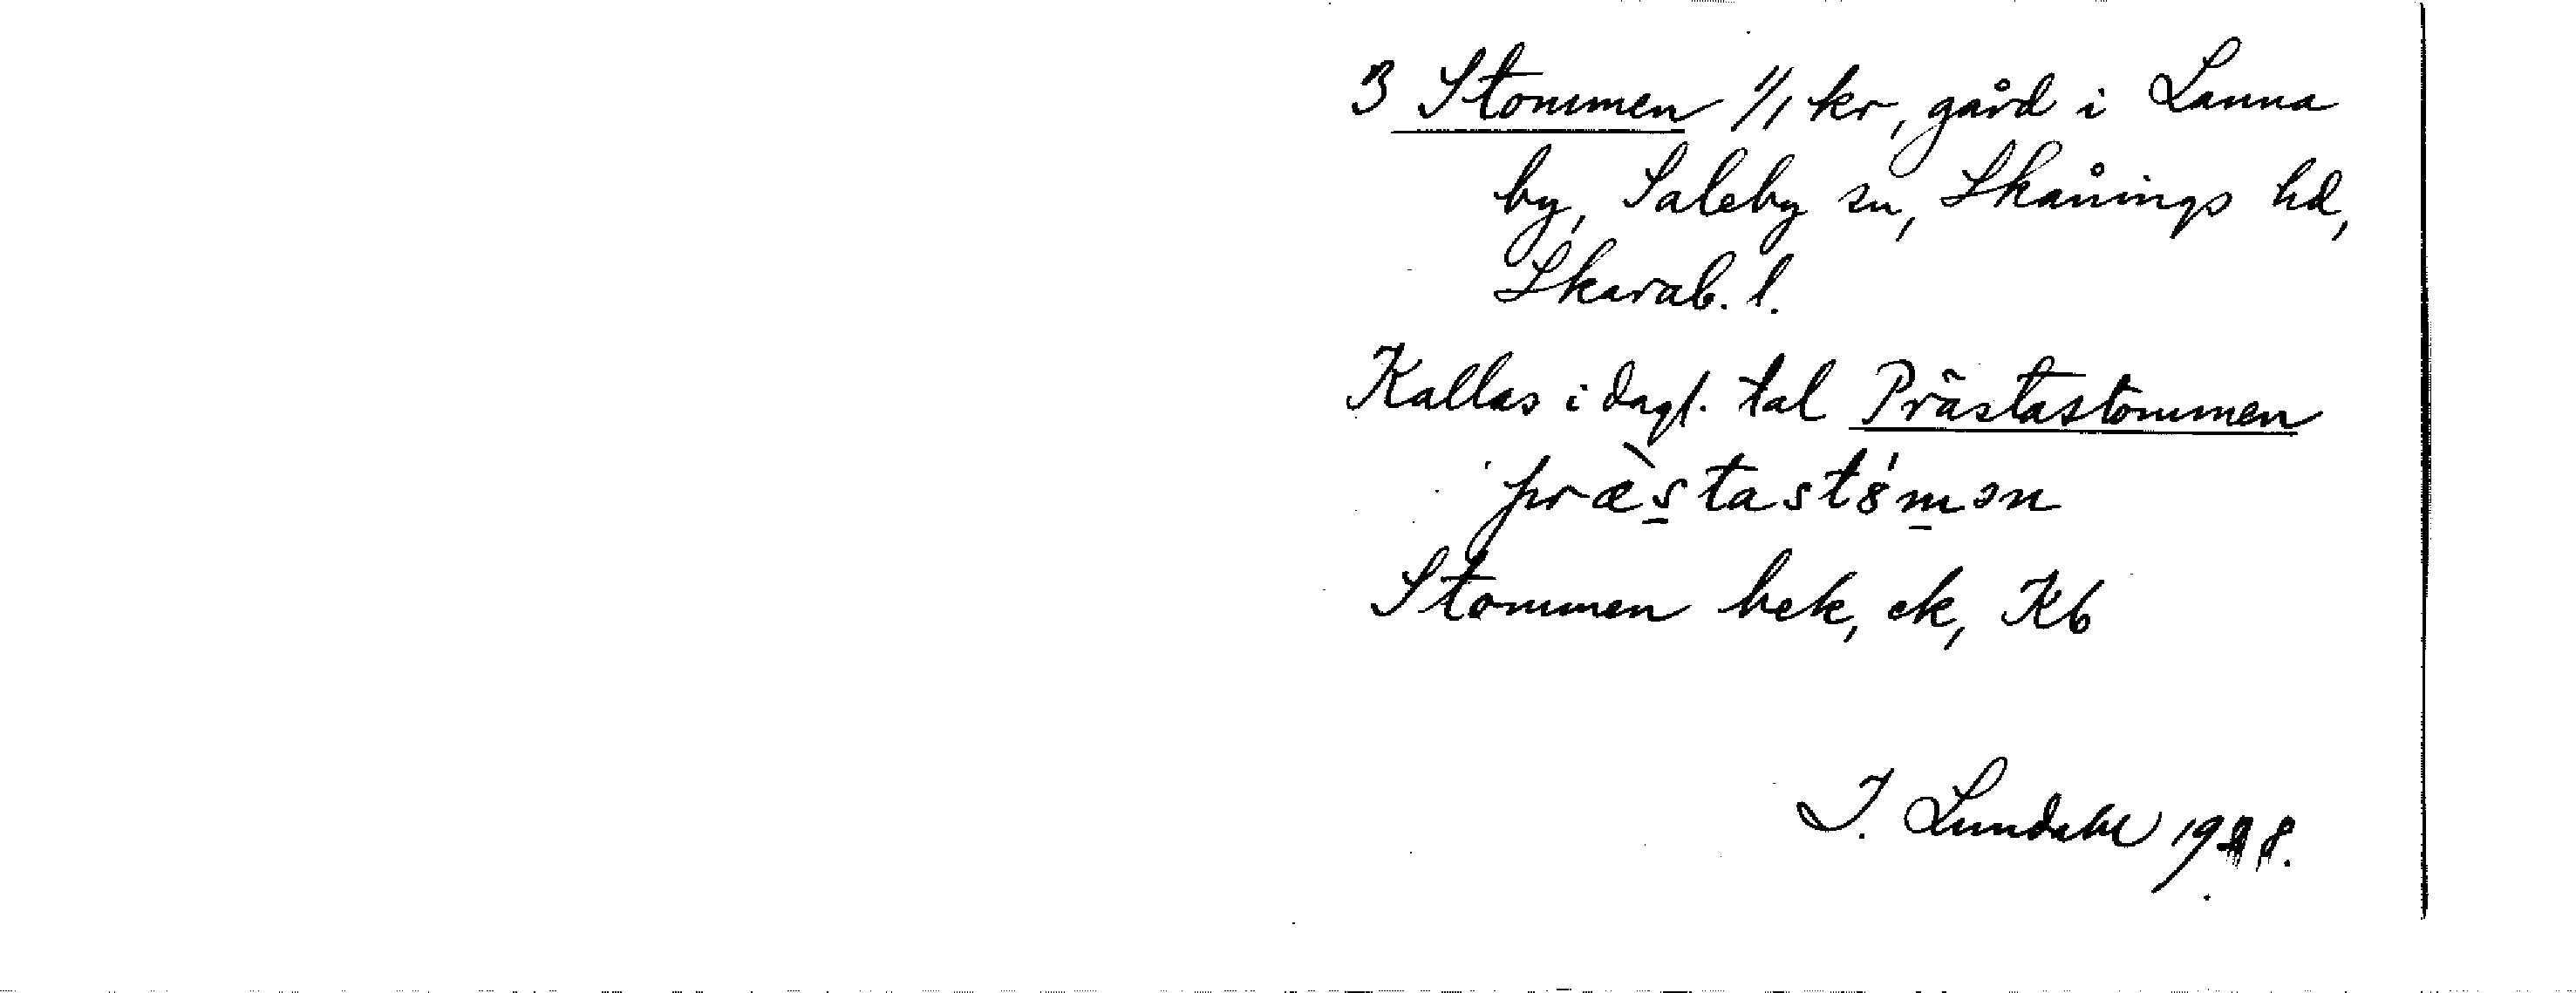 3 Stommen 1/1 kr, gård i Lanna
by, Saleby sn, Skånings hd,
Skarab. l.
Kallas i dagl. tal Prästastommen
præ̀s̲tast8́m̲ən
Stommen hek, ek, Kb
I. Lundahl